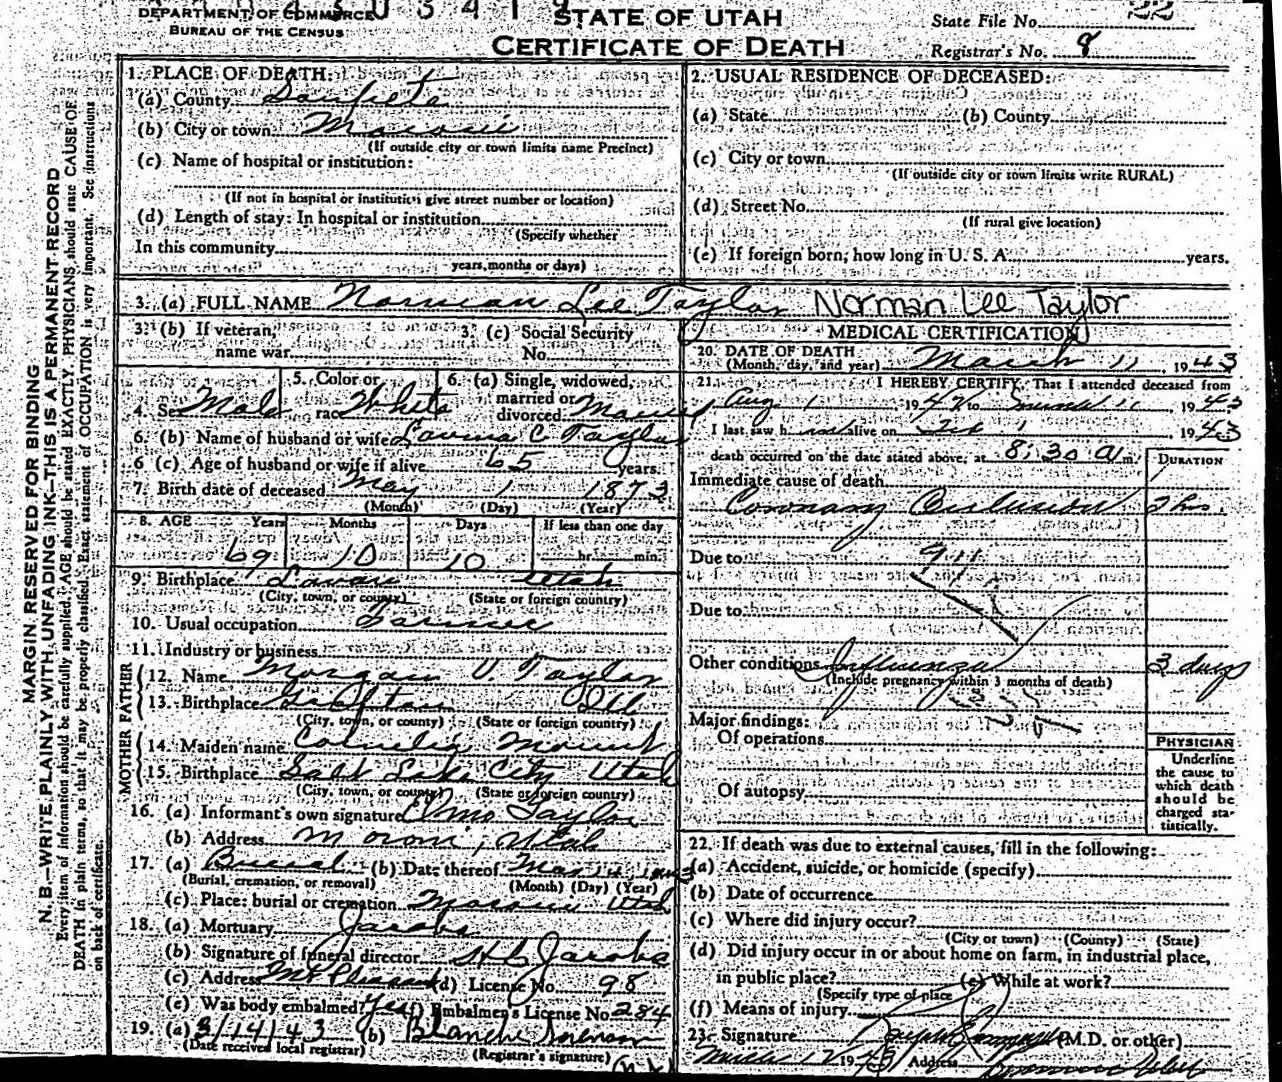 DEPARTMENT OF COMMERCE
BUREAU OF THE CENSUS
STATE OF UTAH
CERTIFICATE OF DEATH
State File No. 22
Registrar's No. 8
MARGIN RESERVED FOR BINDING
N. B.—WRITE PLAINLY, WITH UNFADING INK—THIS IS A PERMANENT RECORD
Every item of information should be carefully supplied. AGE should be stated EXACTLY. PHYSICIANS should state CAUSE OF
DEATH in plain terms, so that it may be properly classified. Exact statement of OCCUPATION is very important. See instructions
on back of certificate.
1. PLACE OF DEATH:
(a) County Sanpete
(b) City or town Moroni
(If outside city or town limits name Precinct)
(c) Name of hospital or institution:
(If not in hospital or institution give street number or location)
(d) Length of stay: In hospital or institution
(Specify whether
In this community
years, months or days)
2. USUAL RESIDENCE OF DECEASED:
(a) State (b) County
(c) City or town
(If outside city or town limits write RURAL)
(d) Street No.
(If rural give location)
(e) If foreign born, how long in U. S. A. years.
3. (a) FULL NAME Norman Lee Taylor Norman Lee Taylor
3. (b) If veteran, name war
3. (c) Social Security No.
4. Sex Male
5. Color or race White
6. (a) Single, widowed, married or divorced Married
6. (b) Name of husband or wife Lavina C Taylor
6 (c) Age of husband or wife if alive 65 years.
7. Birth date of deceased May 1 1873
(Month) (Day) (Year)
8. AGE Years Months Days If less than one day
69 10 10 hr. min.
9. Birthplace Levan Utah
(City, town, or county) (State or foreign country)
10. Usual occupation Farmer
11. Industry or business
FATHER
12. Name Morgan V. Taylor
13. Birthplace Grafton Ill
(City, town, or county) (State or foreign country)
MOTHER
14. Maiden name Cornelia Mount
15. Birthplace Salt Lake City Utah
(City, town, or county) (State or foreign country)
16. (a) Informant's own signature Elmo Taylor
(b) Address Moroni, Utah
17. (a) Burial (b) Date thereof Mar 14 1943
(Burial, cremation, or removal) (Month) (Day) (Year)
(c) Place: burial or cremation Moroni Utah
18. (a) Mortuary Jacobs
(b) Signature of funeral director H L Jacobs
(c) Address Mt Pleasant (d) License No. 98
(e) Was body embalmed? Yes (f) Embalmer's License No. 284
19. (a) 3/14/43 (b) Blanche Sorenson
(Date received local registrar) (Registrar's signature)
MEDICAL CERTIFICATION
20. DATE OF DEATH
(Month, day, and year) March 11, 1943
21. I HEREBY CERTIFY, That I attended deceased from
Aug 1 1942 to March 11, 1943
I last saw h im alive on Feb 1 1943
death occurred on the date stated above, at 8:30 a m.
DURATION
Immediate cause of death
Coronary Occlusion 2 hrs.
Due to
Due to
Other conditions Influenza 3 days
(Include pregnancy within 3 months of death)
Major findings:
Of operations
Of autopsy
PHYSICIAN
Underline
the cause to
which death
should be
charged sta-
tistically.
22. If death was due to external causes, fill in the following:
(a) Accident, suicide, or homicide (specify)
(b) Date of occurrence
(c) Where did injury occur?
(City or town) (County) (State)
(d) Did injury occur in or about home on farm, in industrial place,
in public place? (e) While at work?
(Specify type of place
(f) Means of injury
23. Signature (M.D. or other)
March 12 1943 Address